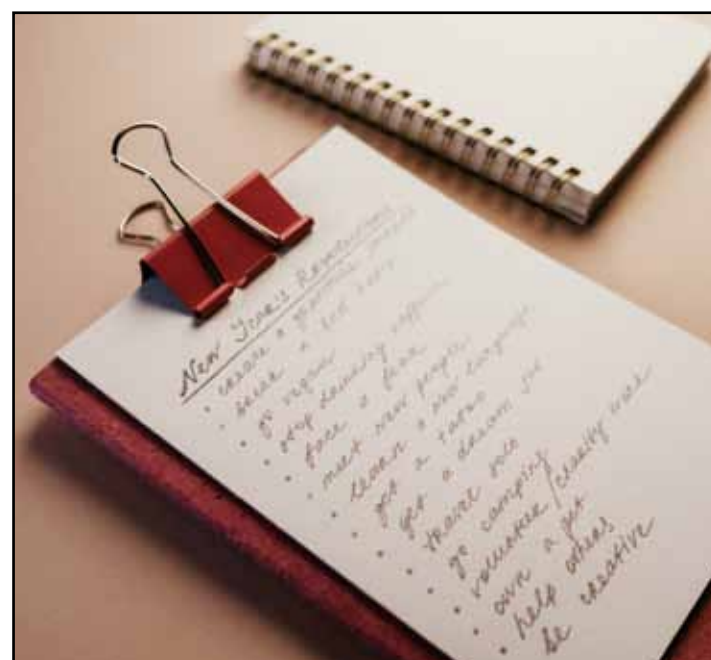 New Year's Resolutions
• create a positive
• break a bad habit
• go vegan
• stop drinking caffeine
• face a fear
• meet new people
• learn a new language
• get a tattoo
• get a dream job
• travel solo
• go camping
• volunteer/charity work
• own a pet
• help others
• be creative